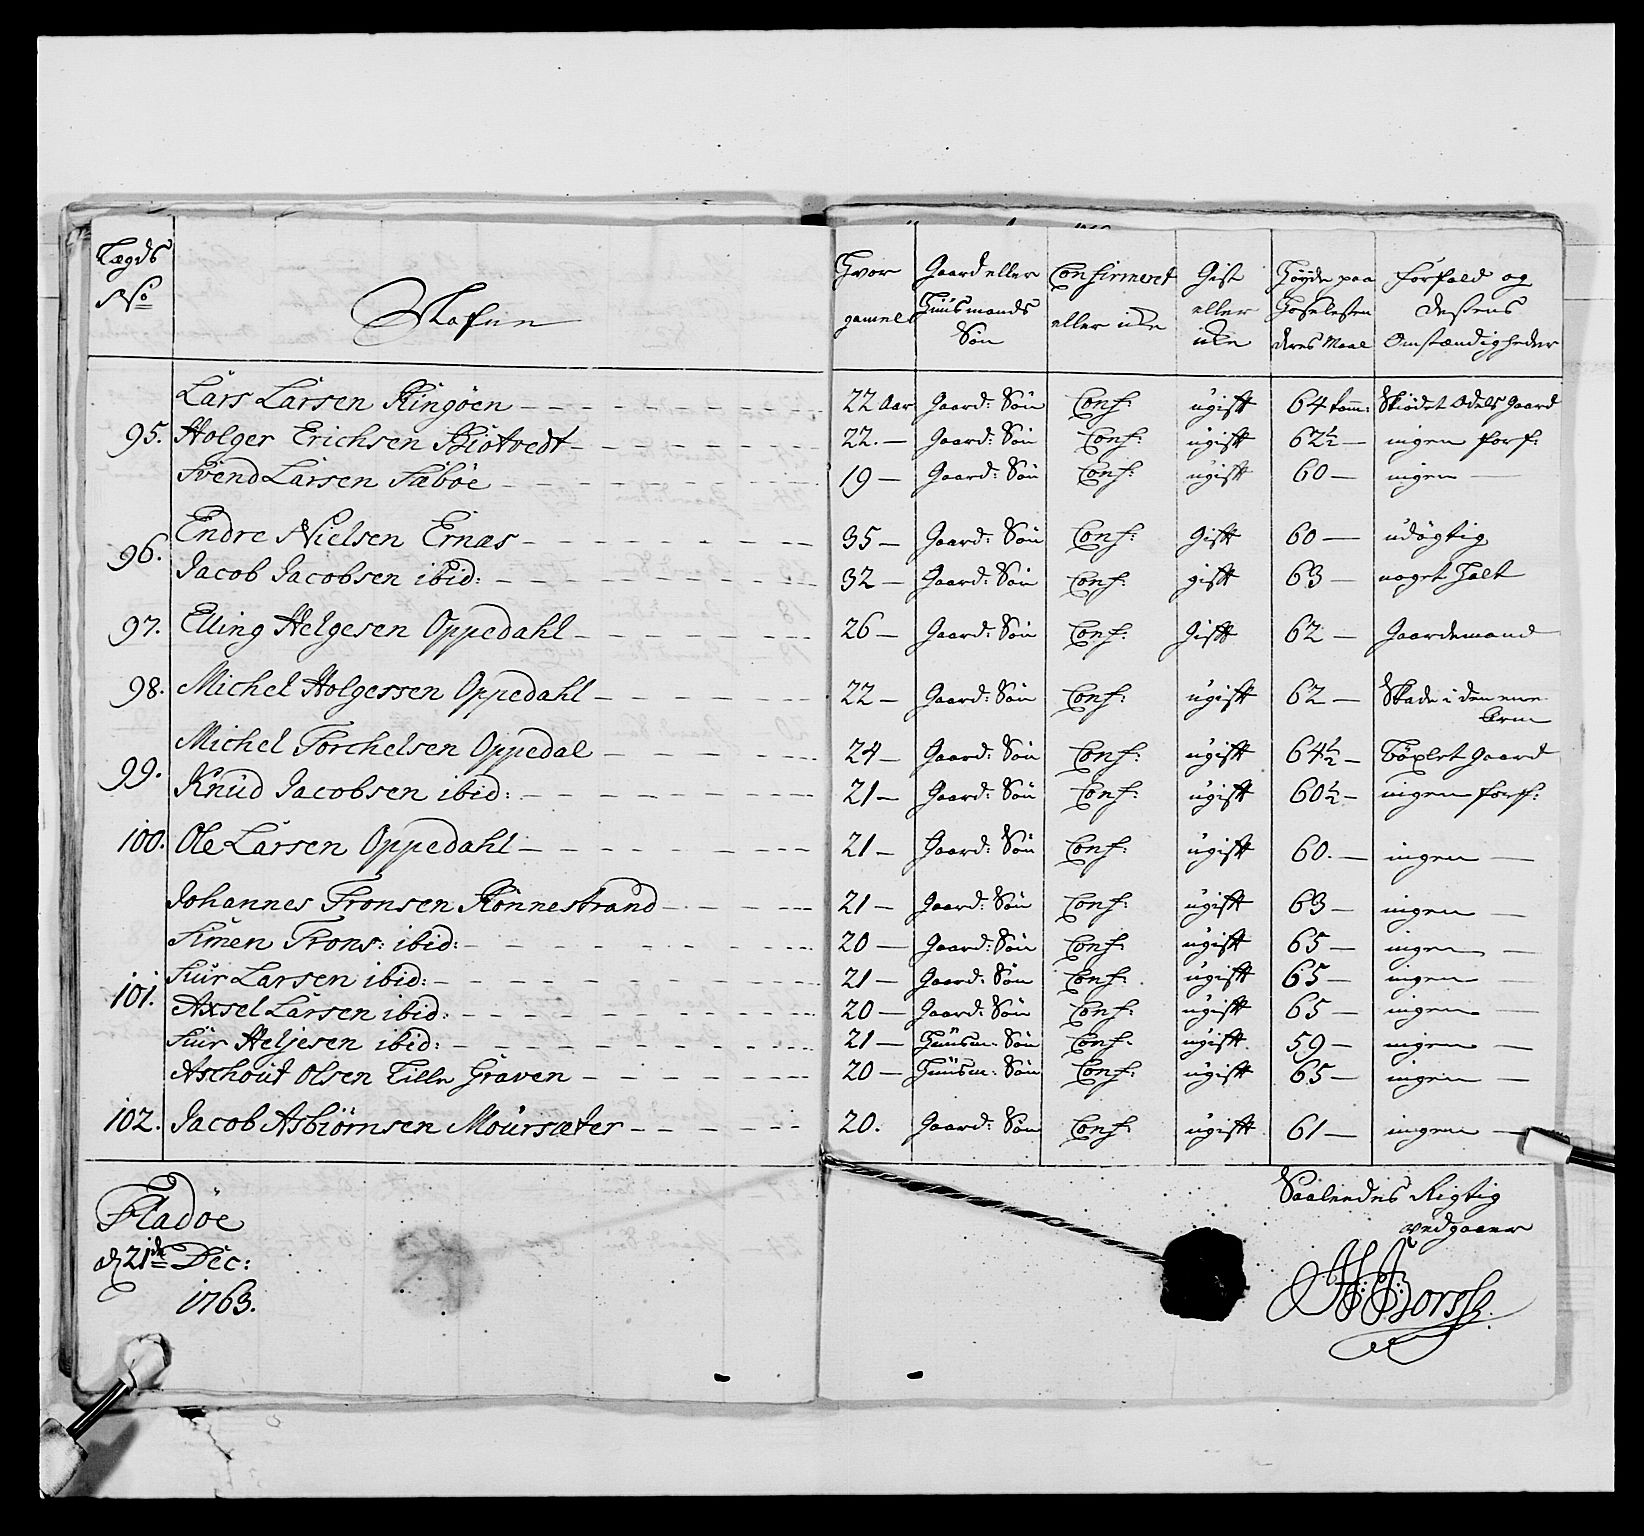 Lægds No | Nafn | Hvor gamel | Gaard eller Huusmands Søn | Confirmeret eller icke | Gift eller icke | Høyde paa Hoselesten deres Maal | Forfald og deßens Omstændigheder
Lars Larsen Ringøen | 22 Aar | Gaard: Søn | Conf: | ugift | 64 tom: | Skiødet Odels Gaard
95. Holger Erichsen Kiotvedt | 22. | Gaard: Søn | Conf: | ugift | 62½ | ingen forf:
Svend Larsen Sæbøe | 19 | Gaard: Søn | Conf: | ugift | 60 | ingen
96. Endre Nielsen Ernæs | 35 | Gaard: Søn | Conf: | Gift | 60 | udögtig
Jacob Jacobsen ibid: | 32 | Gaard: Søn | Conf: | gift | 63 | noget Halt
97. Elling Helgesen Oppedahl | 26 | Gaard: Søn | Conf: | Gift | 62 | Gaardemand
98. Michel Holgessen Oppedahl | 22 | Gaard: Søn | Conf: | ugift | 62 | Skade i den ene Arm
99. Michel Torchelsen Oppedal | 24 | Gaard: Søn | Conf: | ugift | 64½ | Böxlet Gaard
Knud Jacobsen ibid: | 21 | Gaard: Søn | Conf: | ugift | 60½ | ingen forf:
100. Ole Larsen Oppedahl | 21 | Gaard: Søn | Conf: | ugift | 60. | ingen
Johannes Tronsen Rønnestrand | 21 | Gaard: Søn | Conf: | ugift | 63 | ingen
Simen Trons: ibid: | 20 | Gaard: Søn | Conf: | ugift | 65 | ingen
101. Siur Larsen ibid: | 21 | Gaard: Søn | Conf: | ugift | 65 | ingen
Axsel Larsen ibid: | 20 | Gaard: Søn | Conf: | ugift | 65 | ingen
Siur Heljesen ibid: | 21 | Huusm: Søn | Conf: | ugift | 59 | ingen
Aschout Olsen Lille Graven | 20 | Huusm: Søn | Conf: | ugift | 65 | ingen
102. Jacob Asbiörnsen Moursæter | 20. | Gaard: Søn | Conf: | ugift | 61 | ingen
Fladøe
d 21de Dec:
1763.
Saaledes Rigtig
vedgaaer